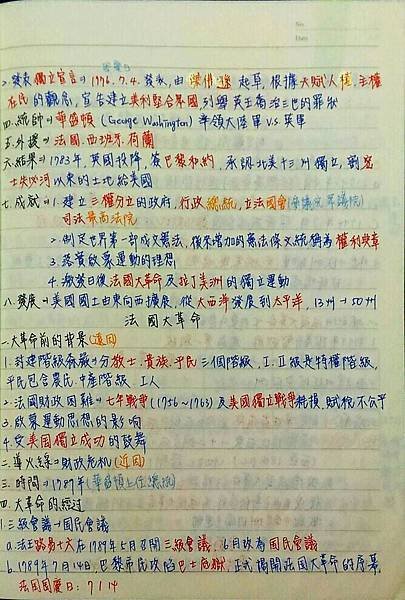 No.
Date
2. 發表獨立宣言⇒1776.7.4. 發表,由傑佛遜起草,根據天賦人權、主權
在民的觀念,宣告建立美利堅合眾國,列舉英王喬治三世的罪狀
四.統帥⇒華盛頓 (George Washington) 率領大陸軍 v.s. 英軍
五.外援⇒法國.西班牙.荷蘭
六.結果⇒1783年,英國投降,簽巴黎和約,承認北美十三州獨立,割密
士失必河以東的土地給美國
七.成就⇒1.建立三權分立的政府,行政總統,立法國會(參議院眾議院)
司法最高法院
2.制定世界第一部成文憲法,後來增加的憲法條文統稱為權利典章
3.落實啟蒙運動的理想
4.激發日後法國大革命及拉丁美洲的獨立運動
八.發展⇒美國國土由東向西擴展,從大西洋發展到太平洋,13州→50州
法國大革命
一.大革命前的背景(遠因)
1.封建階級森嚴⇒分教士.貴族.平民三個階級,I.II級是特權階級,
平民包含農民.中產階級.工人
2.法國財政困難⇒七年戰爭(1756~1763)及美國獨立戰爭耗損,賦稅不公平
3.啟蒙運動思想的影響
4.受美國獨立成功的鼓舞
二.導火線⇒財政危機(近因)
三.時間⇒1789年(華盛頓上任總統)
四.大革命的經過
1.三級會議→國民會議
a.法王路易十六在1789年5月召開三級會議,6月改為國民會議
b.1789年7月14日,巴黎市民攻陷巴士底獄,正式揭開法國大革命的序幕,
法國國慶日:7/14